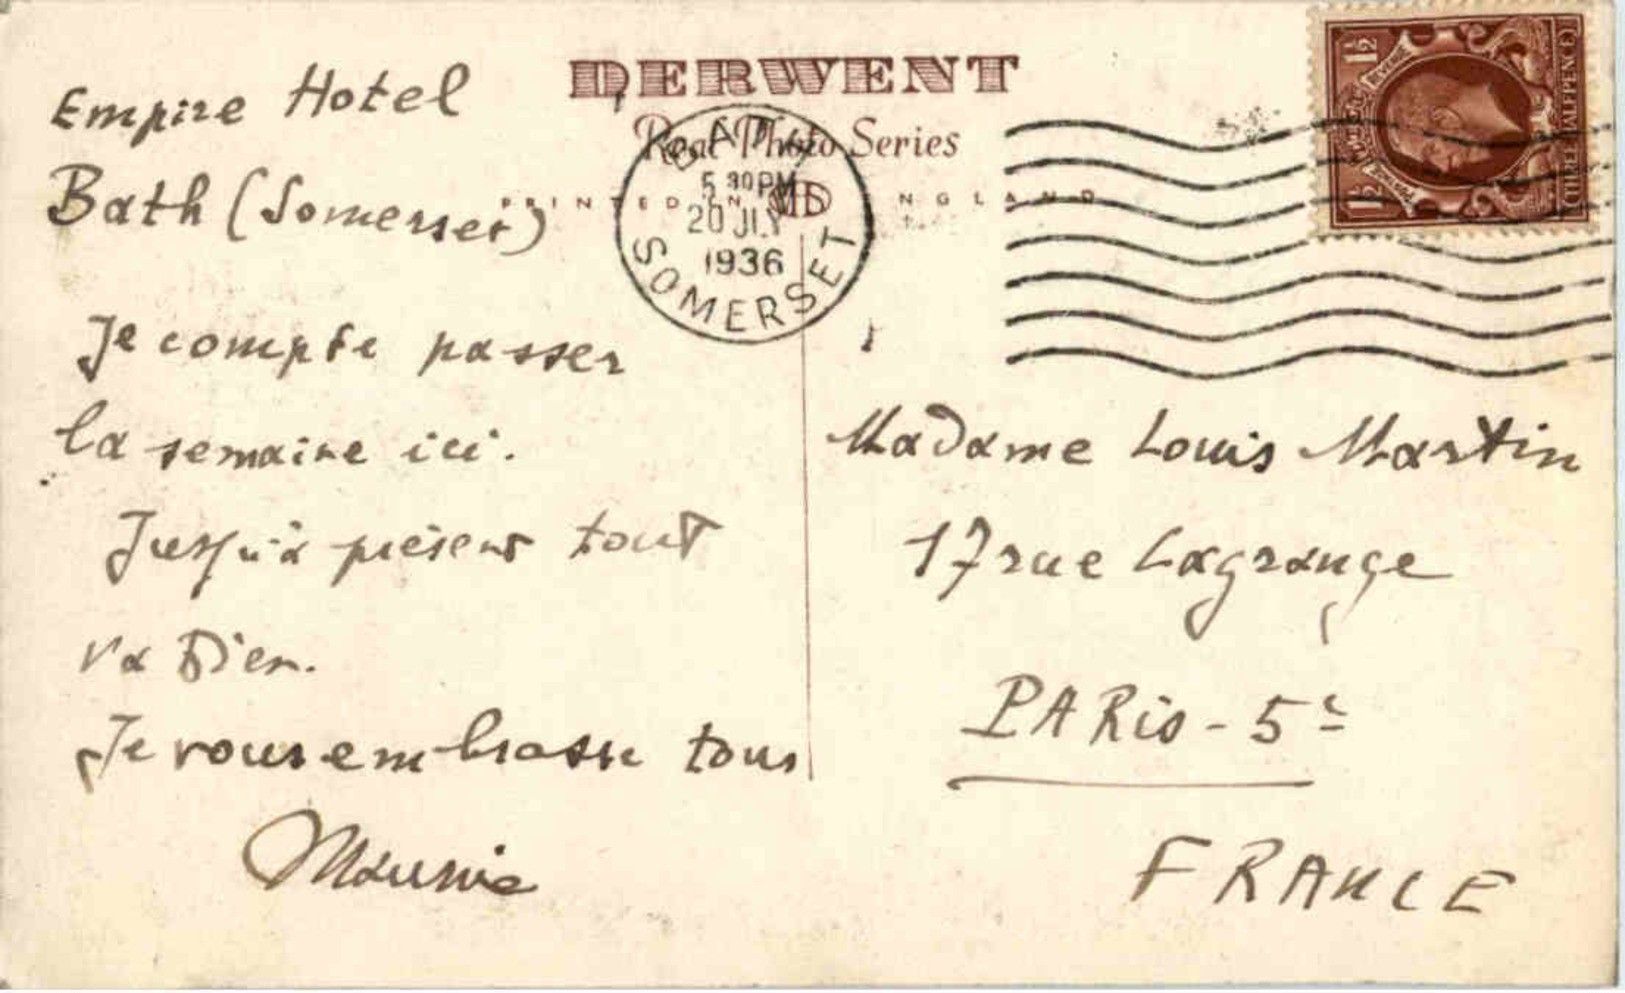 DERWENT
Real Photo Series
PRINTED IN ENGLAND
BATH
5 30 PM
20 JLY
1936
SOMERSET
1½
REVENUE
POSTAGE
1½
THREE HALFPENCE
Empire Hotel
Bath (Somerset)
Je compte passer
la semaine ici.
Jusqu'à présent tout
va bien.
Je vous embrasse tous
Madame Louis Martin
17 rue Lagrange
PARIS - 5e
FRANCE